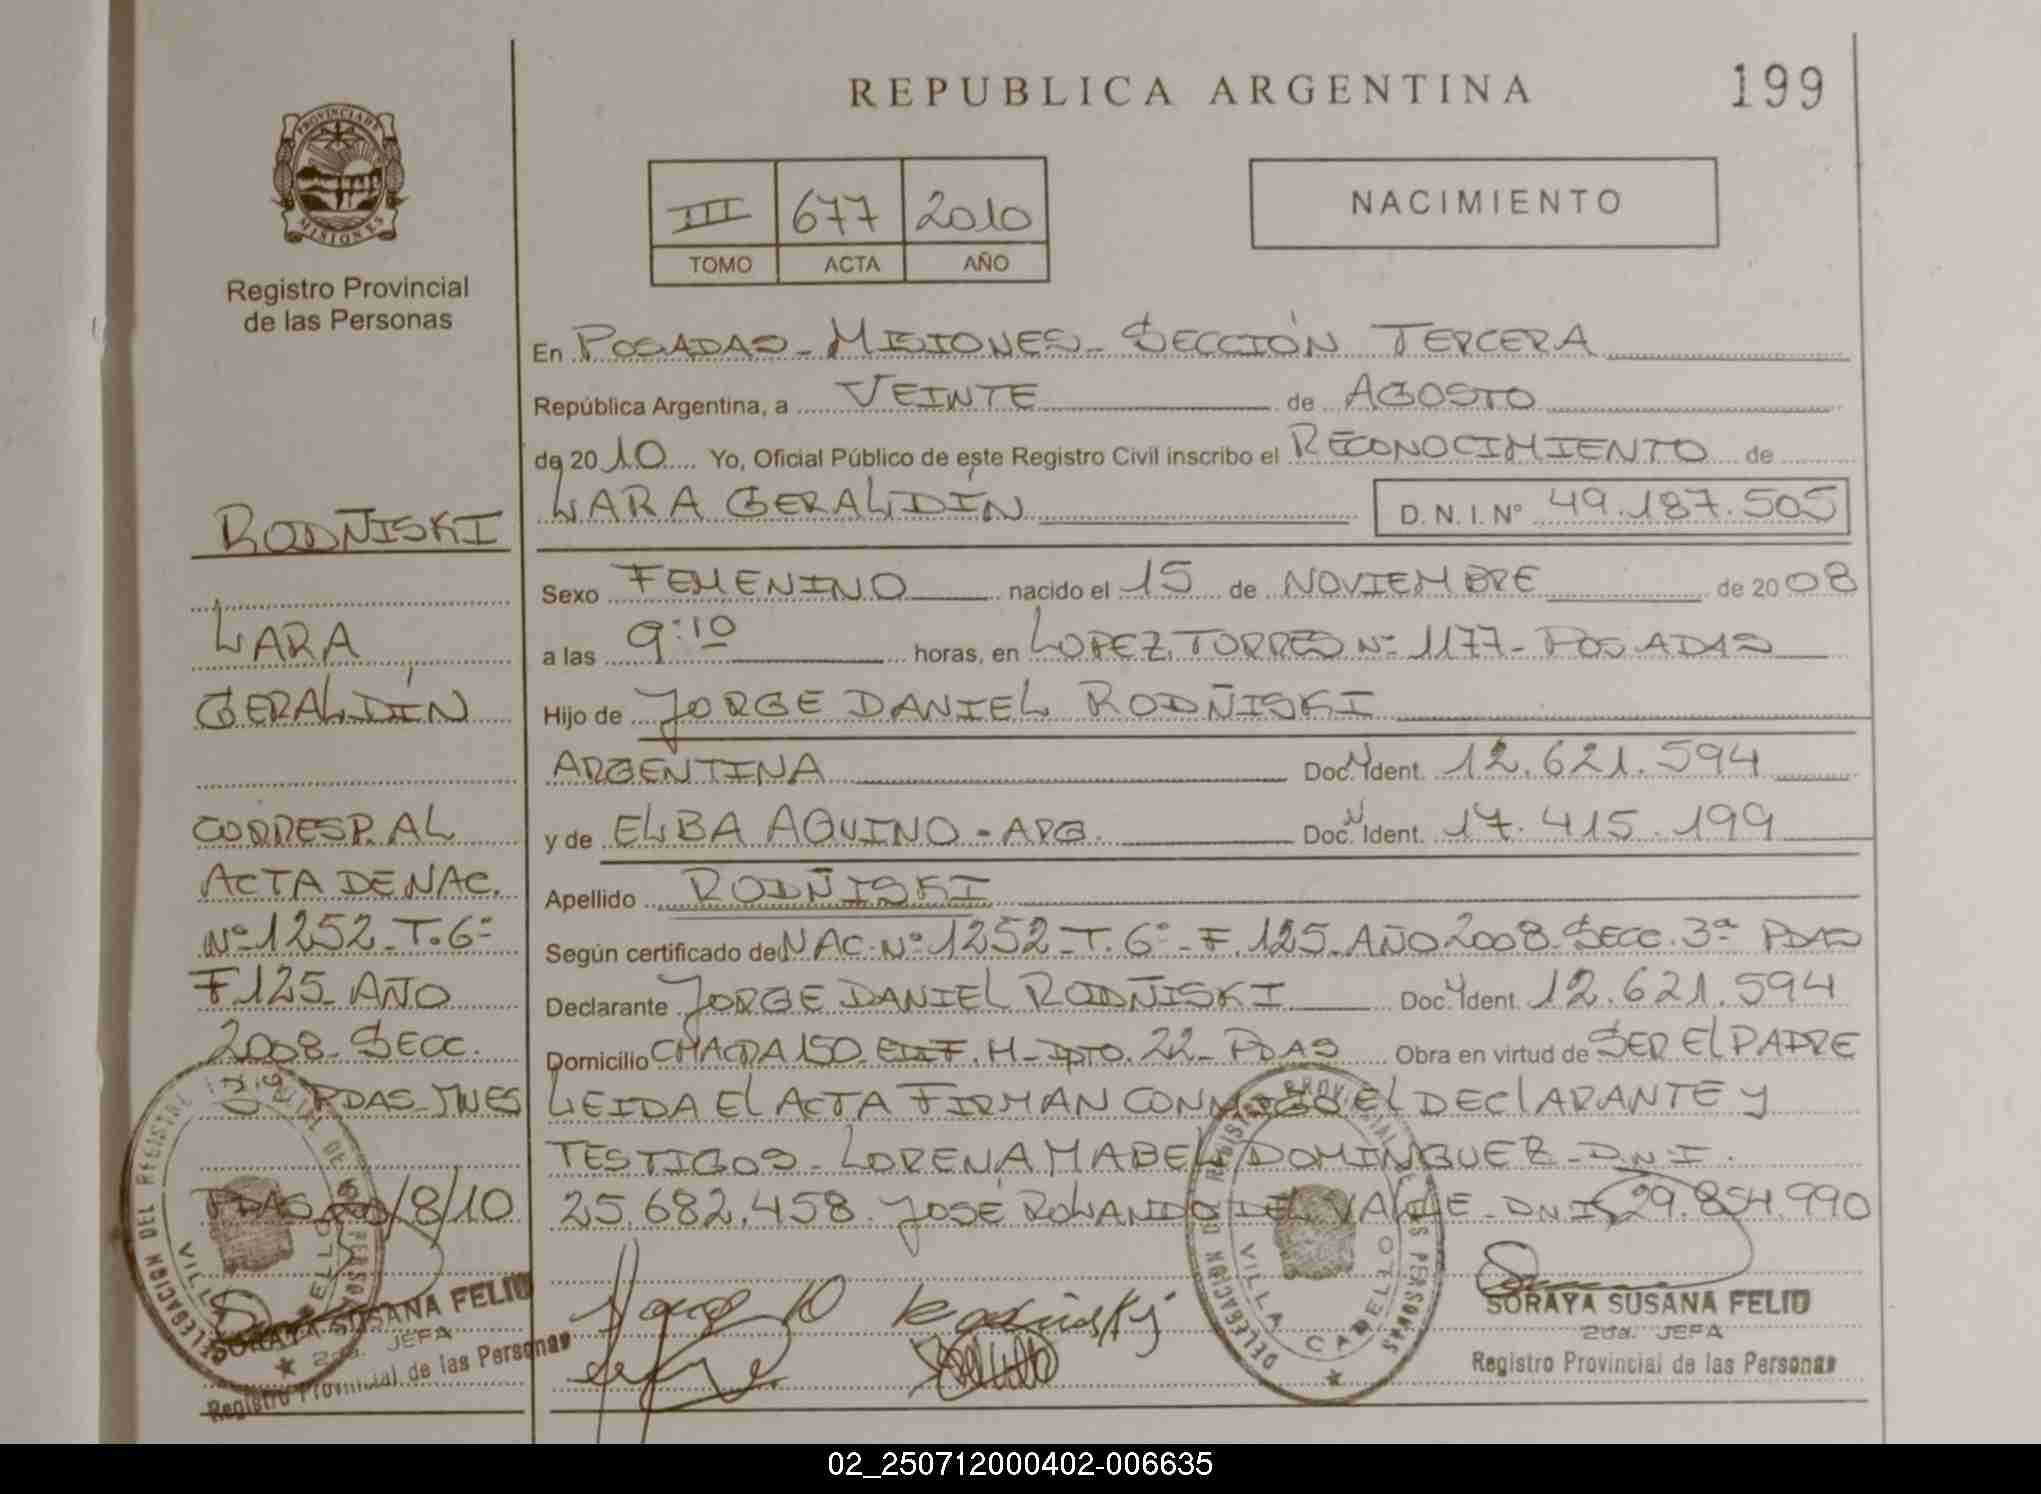 REPUBLICA ARGENTINA
199
PROVINCIA DE MISIONES
Registro Provincial
de las Personas
III 677 2010
TOMO ACTA AÑO
NACIMIENTO
En POSADAS - MISIONES - SECCIÓN TERCERA
República Argentina, a VEINTE de AGOSTO
de 2010 Yo, Oficial Público de este Registro Civil inscribo el RECONOCIMIENTO de
LARA GERALDÍN D. N. I. Nº 49.187.505
Sexo FEMENINO nacido el 15 de NOVIEMBRE de 2008
a las 9:10 horas, en LOPEZ TORRES Nº 1177 - POSADAS
Hijo de JORGE DANIEL RODÑISKI
ARGENTINA Doc. Ident. 12.621.594
y de ELBA AQUINO - ARG. Doc. Ident. 17.415.199
Apellido RODÑISKI
Según certificado de NAC. Nº 1252 - T. 6º - F. 125 - AÑO 2008 - SECC. 3ª PDAS
Declarante JORGE DANIEL RODÑISKI Doc. Ident. 12.621.594
Domicilio CHACRA 150 - EDIF. H - DPTO. 22 - PDAS Obra en virtud de SER EL PADRE
LEIDA EL ACTA FIRMAN CONMIGO EL DECLARANTE Y
TESTIGOS - LORENA MABEL DOMINGUEZ - D.N.I.
25.682.458. JOSÉ ROLANDO DEL VALLE - DNI 29.854.990
RODÑISKI
LARA
GERALDÍN
CORRESP. AL
ACTA DE NAC.
Nº 1252 - T. 6º
F 125 - AÑO
2008 - SECC.
3ª PDAS - MNES
PDAS 20/8/10
DELEGACION DEL REGISTRO PROVINCIAL DE LAS PERSONAS
VILLA CABELLO
SORAYA SUSANA FELIU
2da. JEFA
Registro Provincial de las Personas
DELEGACION DEL REGISTRO PROVINCIAL DE LAS PERSONAS
VILLA CABELLO
SORAYA SUSANA FELIU
2da. JEFA
Registro Provincial de las Personas
02_250712000402-006635